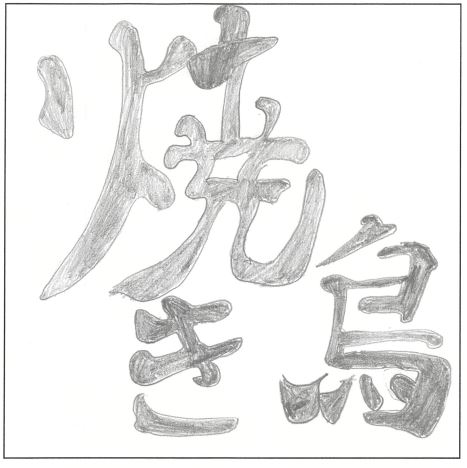 焼き鳥